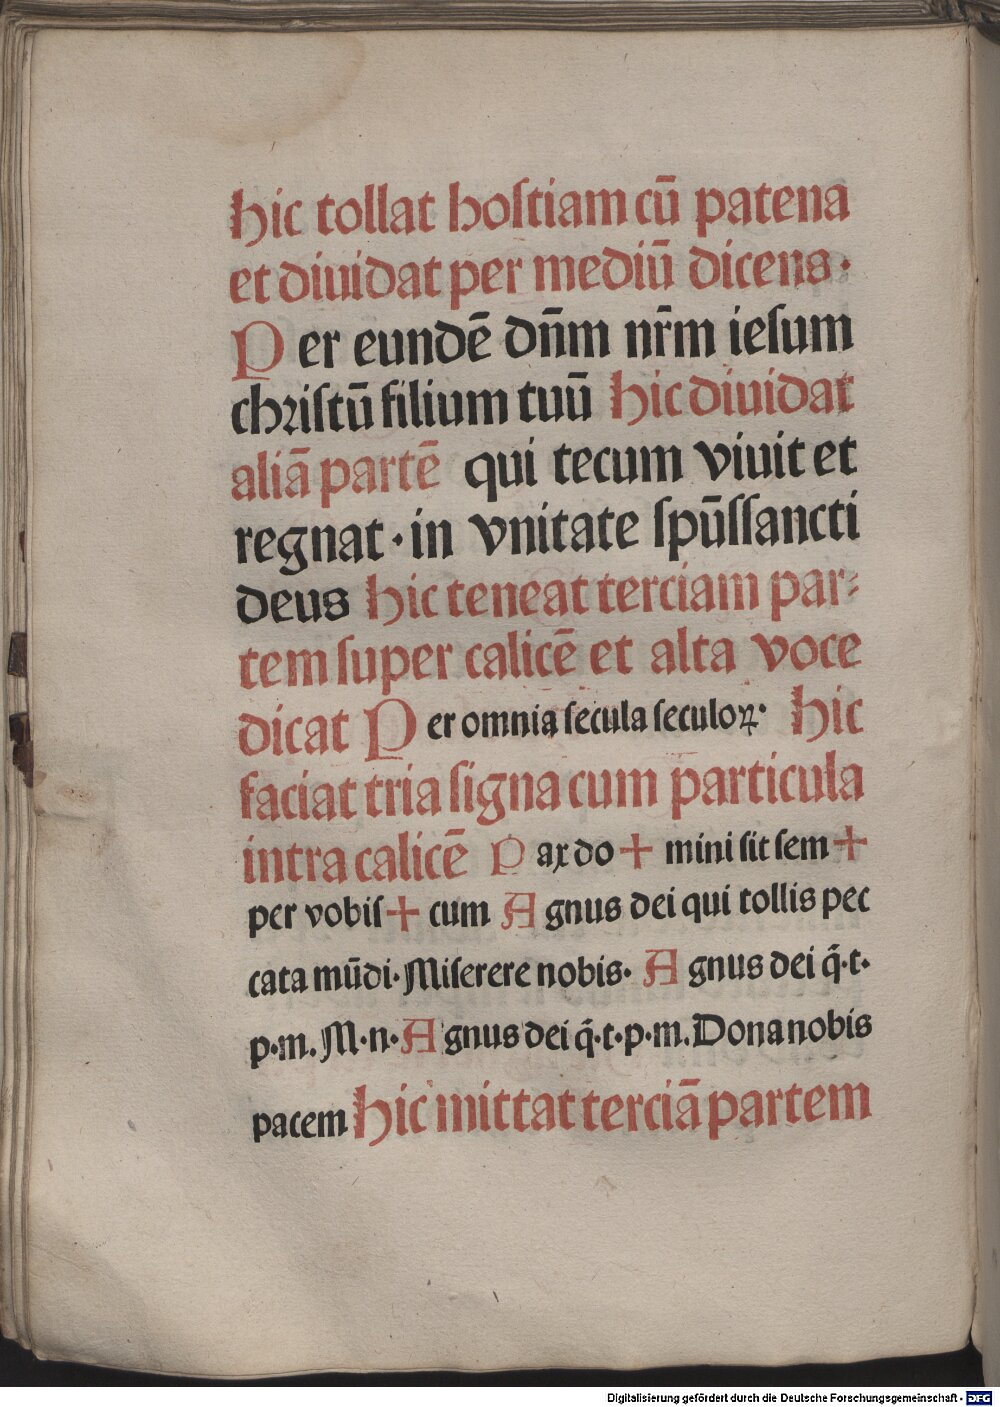 hic tollat hoſtiam cū patena
et diuidat per mediū dicens·
Per eundē dn̄m nr̄m ieſum
chriſtū filium tuū hic diuidat
aliā partē qui tecum viuit et
regnat · in vnitate ſpūſſancti
deus hic teneat terciam par⸗
tem ſuper calicē et alta voce
dicat Per omnia ſecula ſeculoꝝ· hic
faciat tria ſigna cum particula
intra calicē Pax do + mini ſit ſem +
per vobiſ + cum Agnus dei qui tollis pec
cata mūdi· Miſerere nobis· Agnus dei q̄·t·
p·m. M·n· Agnus dei q̄·t·p·m. Dona nobis
pacem hic mittat terciā partem
Digitalisierung gefördert durch die Deutsche Forschungsgemeinschaft - DFG